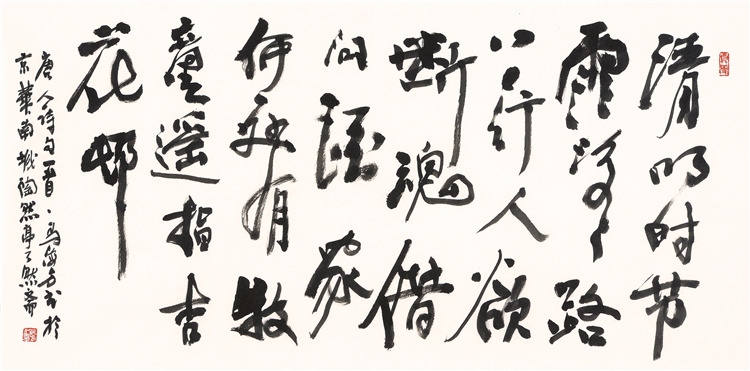 清明时节
雨纷纷路
上行人欲
断魂借
问酒家
何处有牧
童遥指杏
花邨
唐人诗句一首·马海方书于
京华南城陶然亭了然斋